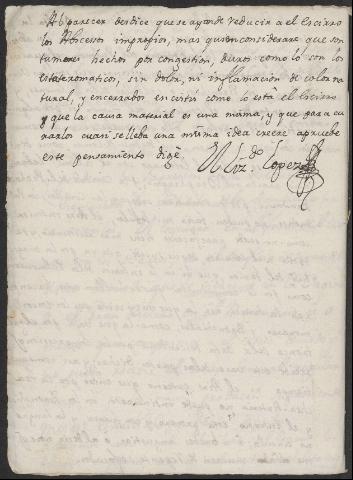 Al parecer desdice que se ayan de reducir a el Escirro
los Abscessos impropios, mas quien considerare que son
tumores hechos por congestion, duros como lo son los
esteatomaticos, sin dolor, ni inflamacion de color na
tural, y encerrados en cistis como lo està el Escirro
y que la causa material es una misma, y que para cu
rarlos cuasi se lleba una misma idea creere aprueve
este pensamiento dixe
Lopez